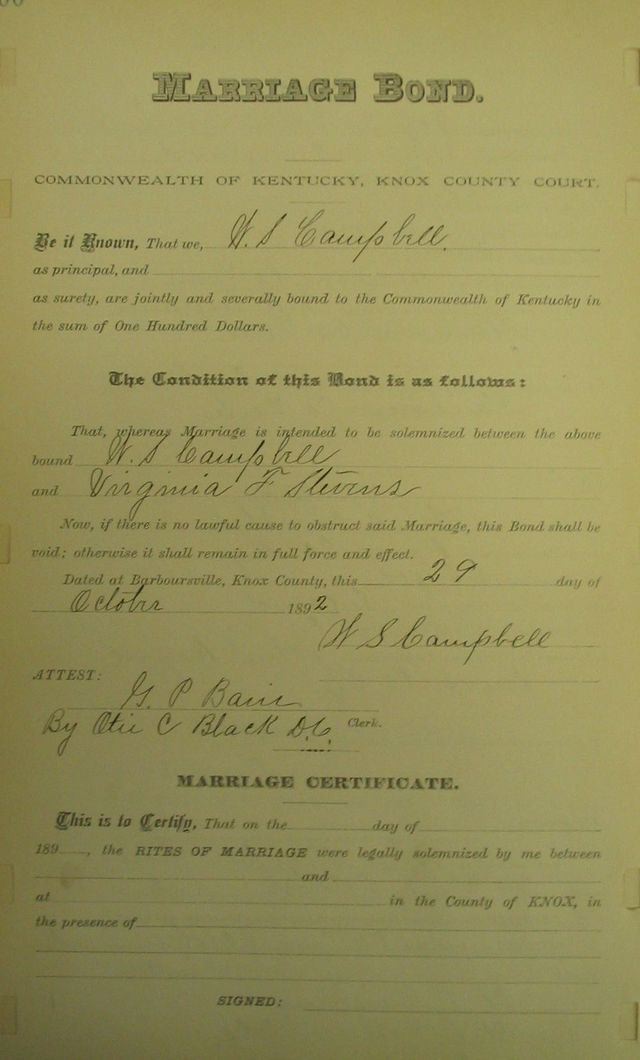 MARRIAGE BOND.
COMMONWEALTH OF KENTUCKY, KNOX COUNTY COURT.
Be it Known, That we, W. S Campbell.
as principal, and
as surety, are jointly and severally bound to the Commonwealth of Kentucky in
the sum of One Hundred Dollars.
The Condition of this Bond is as follows:
That, whereas Marriage is intended to be solemnized between the above
bound W. S Campbell
and Virginia F Stevens
Now, if there is no lawful cause to obstruct said Marriage, this Bond shall be
void; otherwise it shall remain in full force and effect.
Dated at Barboursville, Knox County, this 29 day of
October 1892
W S Campbell
ATTEST:
G. P Bain
Clerk.
By Otis C Black D.C.
MARRIAGE CERTIFICATE.
This is to Certify, That on the day of
189 , the RITES OF MARRIAGE were legally solemnized by me between
and
at in the County of KNOX, in
the presence of
SIGNED: